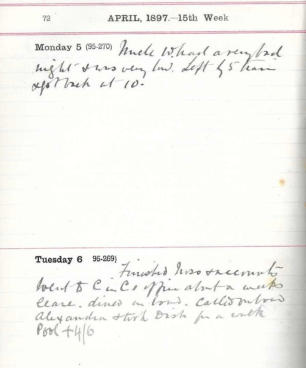 72
APRIL, 1897.—15th Week
Monday 5 (95-270) Uncle W. had a very bad
night & was very low. Left by 5 train
& got back at 10.
Tuesday 6 96-269)
Finished accounts
Went to C in C's office about a weeks
leave. dined on board. Called on board
Alexandra & took Dash for a walk
Pool + 4/6